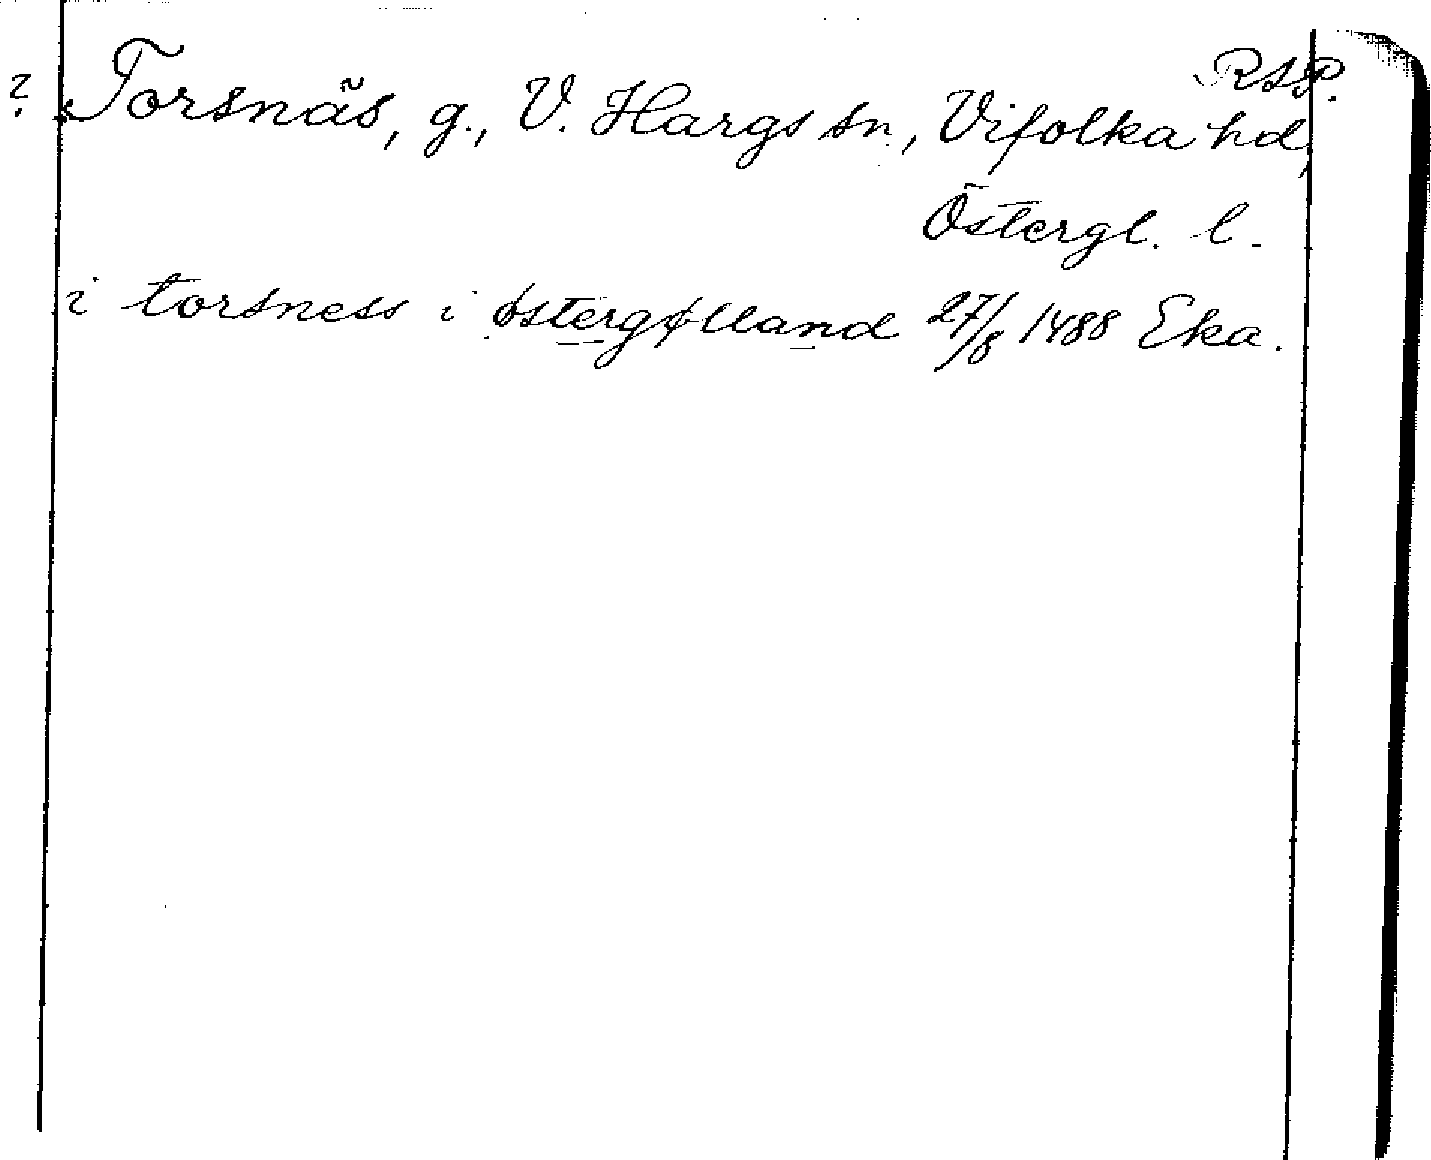 RAP.
? Torsnäs, g., V. Hargs sn., Vifolka hd,
Östergl. l.
i torsness i østergølland 27/8 1488 Eka.